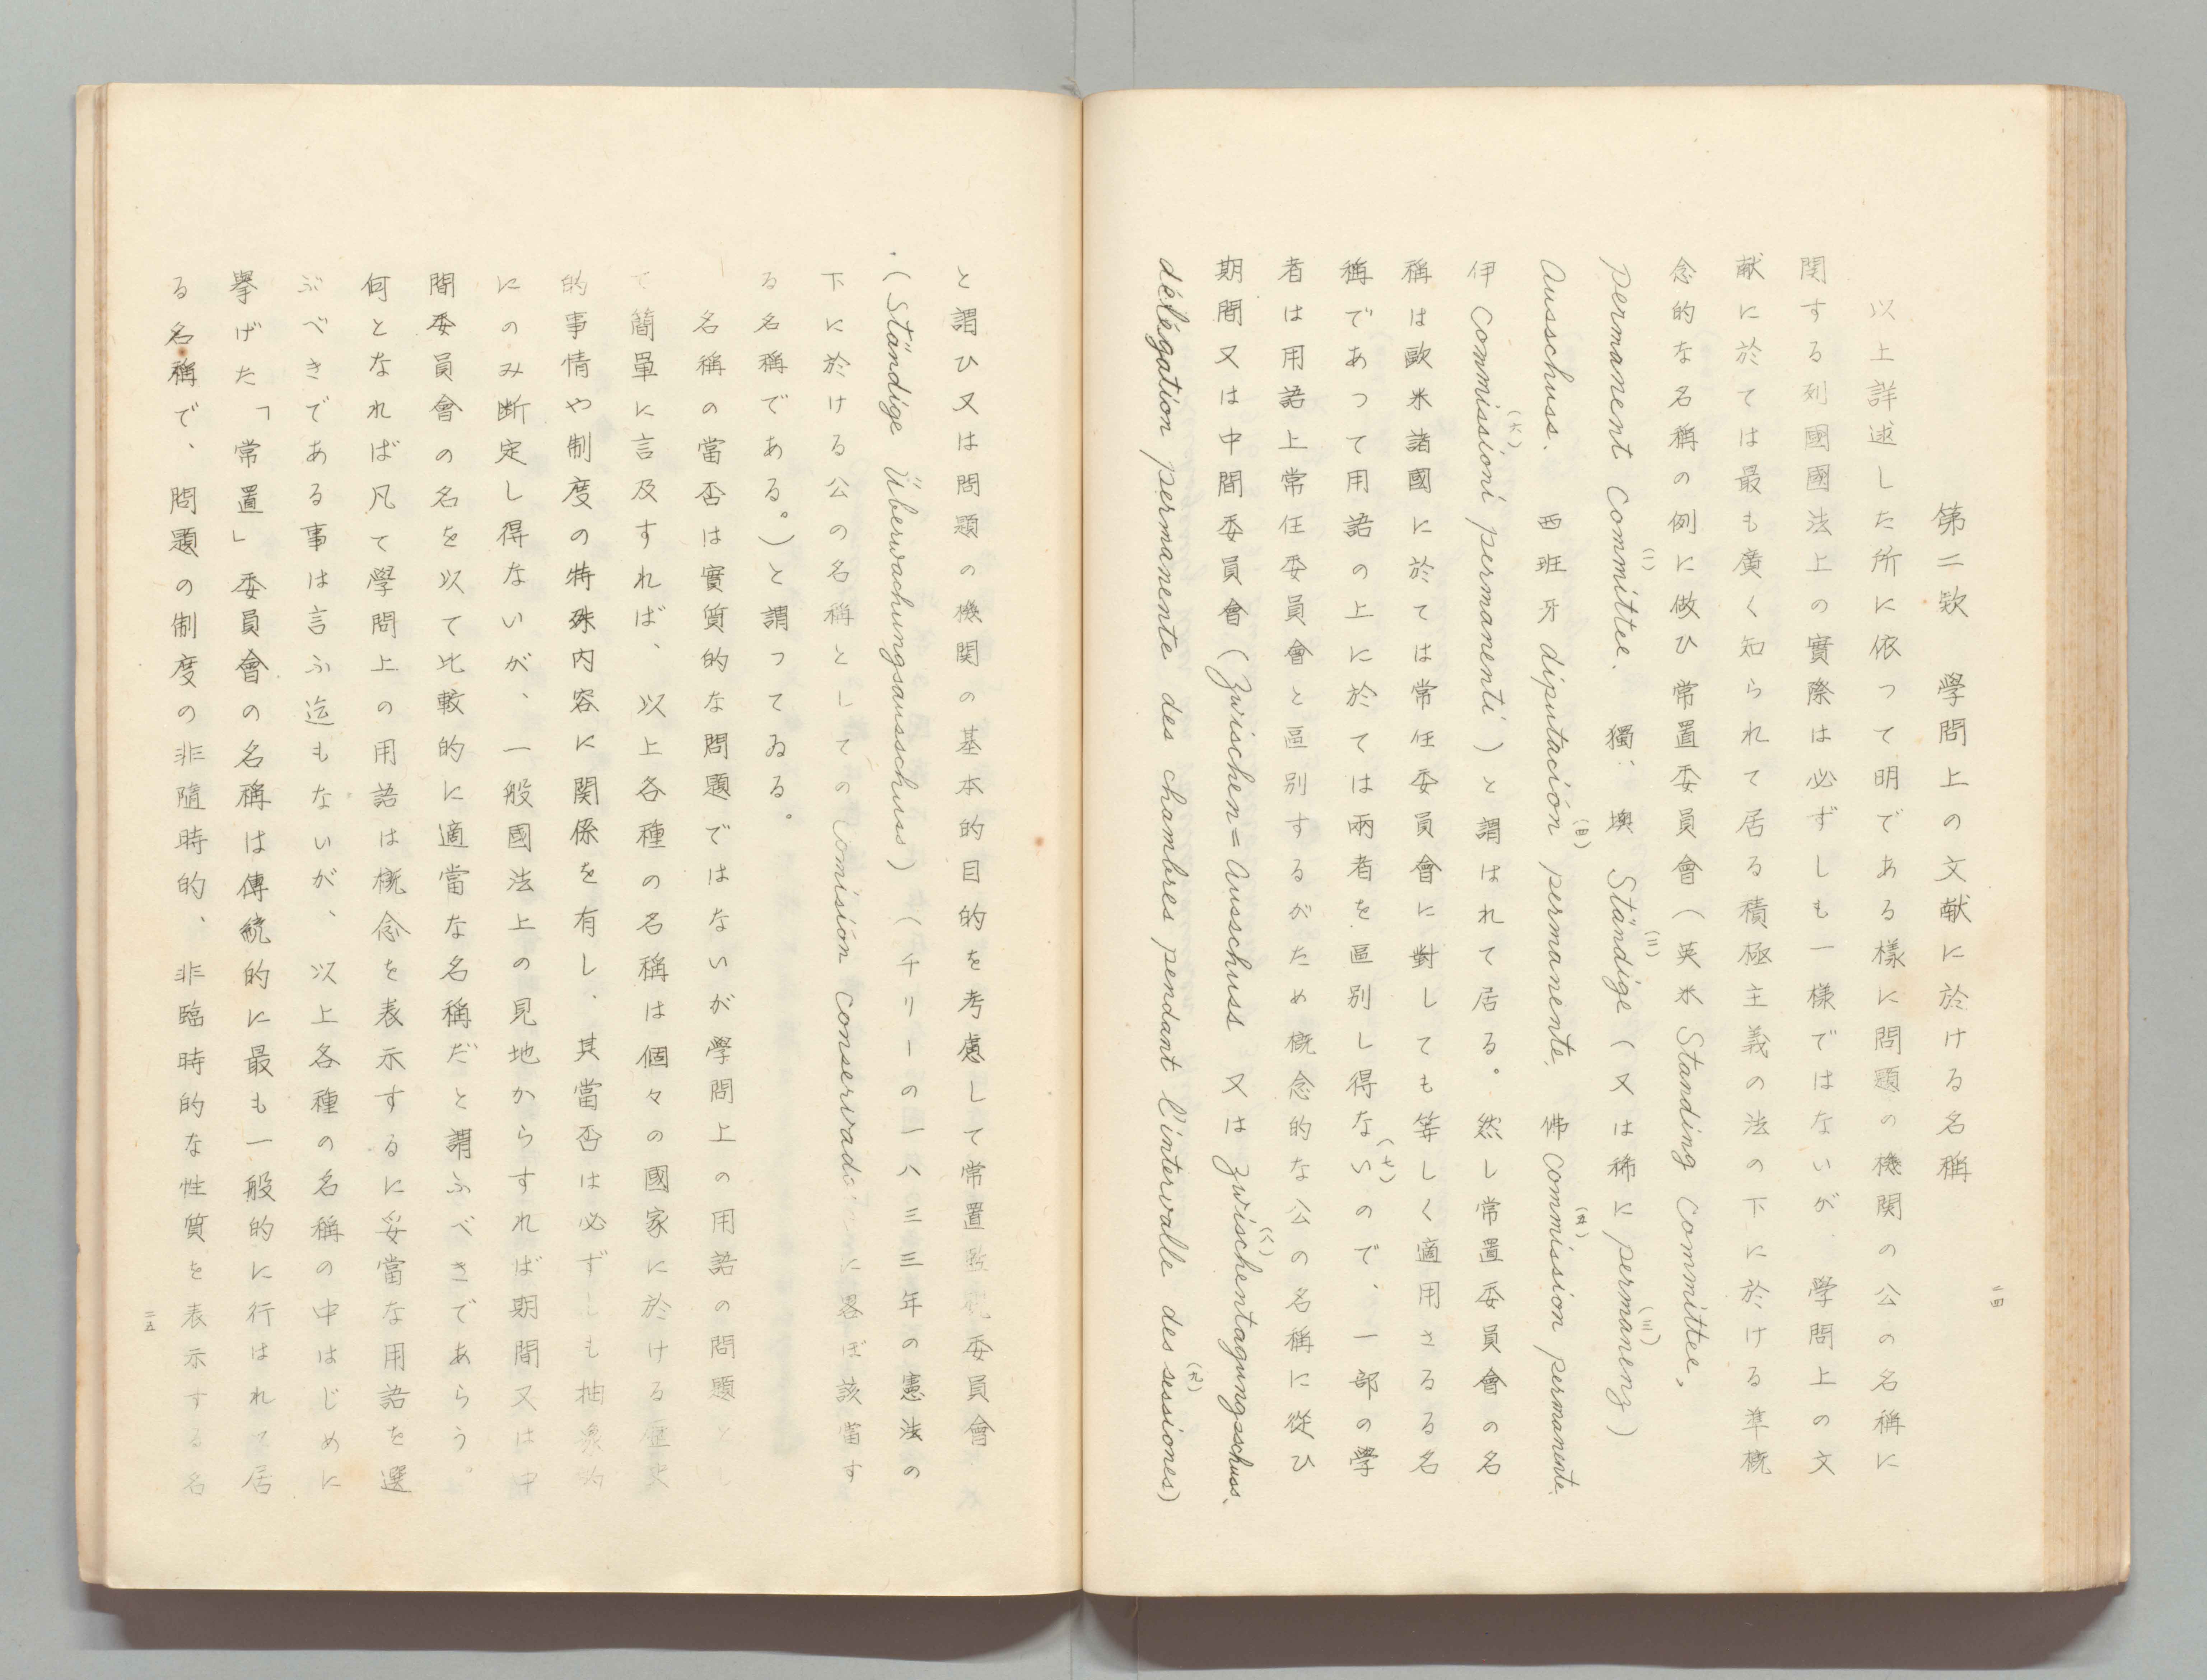 第二欵　學問上の文献に於ける名稱
以上詳述した所に依って明である樣に問題の機関の公の名稱に
関する列國國法上の實際は必ずしも一樣ではないが、學問上の文
献に於ては最も廣く知られて居る積極主義の法の下に於ける準槪
念的な名稱の例に倣ひ常置委員會（英米 Standing Committee,
permanent Committee.(一) 獨：墺 Ständige(二)（又は稀に permanenz(三)）
Ausschuss. 西班牙 diputación(四) permanente. 佛 Commission(五) permanente.
伊 Commissioni(六) permanenti）と謂はれて居る。然し常置委員會の名
稱は歐米諸國に於ては常任委員會に對しても等しく適用さるる名
稱であって用語の上に於ては兩者を區別し得ない(七)ので、一部の學
者は用語上常任委員會と區別するがため槪念的な公の名稱に從ひ
期間又は中間委員會（Zwischen=Ausschuss 又は Zwischentagungsschuss.(八)
délégation permanente des chambres pendant l'intervalle des sessiones(九)）
二四
と謂ひ又は問題の機関の基本的目的を考慮して常置監視委員會
（Ständige Überwachungsausschuss）（チリーの一八三三年の憲法の
下に於ける公の名稱としての Comisión Conservadora に畧ぼ該當す
る名稱である。）と謂ってゐる。
名稱の當否は實質的な問題ではないが學問上の用語の問題とし
て簡單に言及すれば、以上各種の名稱は個々の國家に於ける歷史
的事情や制度の特殊內容に関係を有し、其當否は必ずしも抽象的
にのみ断定し得ないが、一般國法上の見地からすれば期間又は中
間委員會の名を以て比較的に適當な名稱だと謂ふべきであらう。
何となれば凡て學問上の用語は槪念を表示するに妥當な用語を選
ぶべきである事は言ふ迄もないが、以上各種の名稱の中はじめに
擧げた「常置」委員會の名稱は傳統的に最も一般的に行はれて居
る名稱で、問題の制度の非隨時的、非臨時的な性質を表示する名
二五